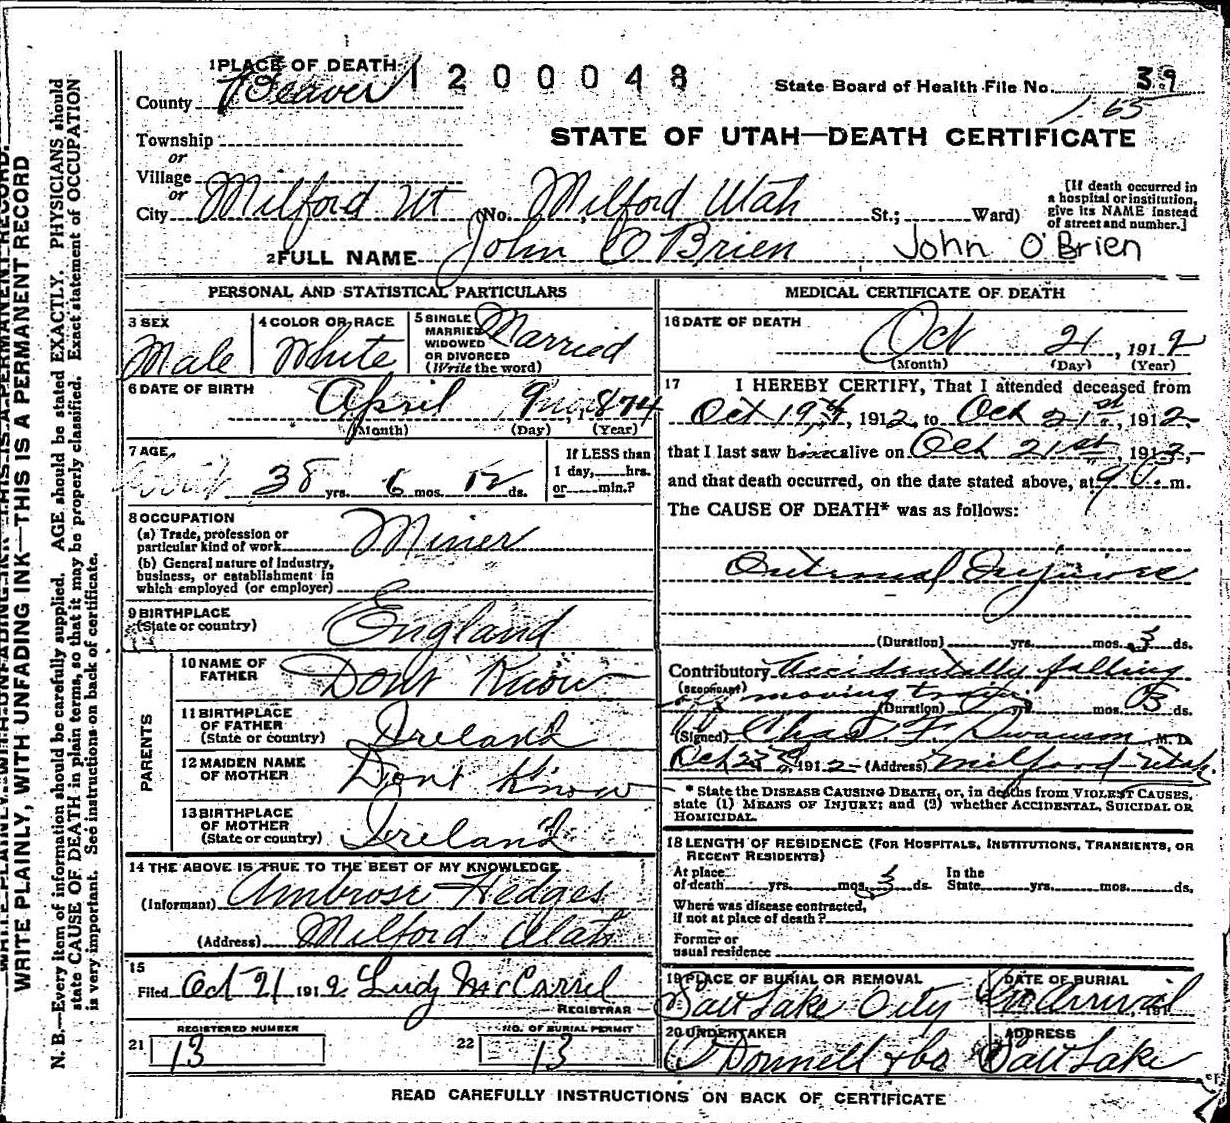 1 PLACE OF DEATH
1200048
State Board of Health File No. 39
County Beaver
165
Township
STATE OF UTAH—DEATH CERTIFICATE
or
Village
or
City Milford Ut (No. Milford Utah St.; Ward)
[If death occurred in a hospital or institution, give its NAME instead of street and number.]
2 FULL NAME John O'Brien John O'Brien
PERSONAL AND STATISTICAL PARTICULARS
3 SEX
Male
4 COLOR OR RACE
White
5 SINGLE
MARRIED
WIDOWED
OR DIVORCED
(Write the word)
Married
6 DATE OF BIRTH
April 9 1874
(Month) (Day) (Year)
7 AGE
38 yrs. 6 mos. 12 ds.
If LESS than
1 day, hrs.
or min.?
8 OCCUPATION
(a) Trade, profession or
particular kind of work Miner
(b) General nature of industry,
business, or establishment in
which employed (or employer)
9 BIRTHPLACE
(State or country) England
PARENTS
10 NAME OF
FATHER Dont Know
11 BIRTHPLACE
OF FATHER
(State or country) Ireland
12 MAIDEN NAME
OF MOTHER Dont Know
13 BIRTHPLACE
OF MOTHER
(State or country) Ireland
14 THE ABOVE IS TRUE TO THE BEST OF MY KNOWLEDGE
(Informant) Ambrose Hedges
(Address) Milford Utah
15
Filed Oct 21 1912 Ludy McCarrel
REGISTRAR
REGISTERED NUMBER
21 13
NO. OF BURIAL PERMIT
22 13
MEDICAL CERTIFICATE OF DEATH
16 DATE OF DEATH
Oct 21, 1912
(Month) (Day) (Year)
17 I HEREBY CERTIFY, That I attended deceased from
Oct 19th, 1912, to Oct 21st, 1912
that I last saw h alive on Oct 21st, 191
and that death occurred, on the date stated above, at 9 m.
The CAUSE OF DEATH* was as follows:
Internal Injuries
(Duration) yrs. mos. 3 ds.
Contributory Accidentally falling
(SECONDARY) moving train
(Duration) yrs. mos. 03 ds.
(Signed) Chas F. Swanson, M. D.
Oct 23, 1912 (Address) Milford Utah.
* State the DISEASE CAUSING DEATH, or, in deaths from VIOLENT CAUSES,
state (1) MEANS OF INJURY; and (2) whether ACCIDENTAL, SUICIDAL OR
HOMICIDAL.
18 LENGTH OF RESIDENCE (FOR HOSPITALS, INSTITUTIONS, TRANSIENTS, OR
RECENT RESIDENTS)
At place
of death yrs. mos. 3 ds. In the State yrs. mos. ds.
Where was disease contracted,
if not at place of death?
Former or
usual residence
19 PLACE OF BURIAL OR REMOVAL
Salt Lake City
DATE OF BURIAL
On Arrival 191
20 UNDERTAKER
O'Donnell & Co
ADDRESS
Salt Lake
READ CAREFULLY INSTRUCTIONS ON BACK OF CERTIFICATE
WRITE PLAINLY, WITH UNFADING INK—THIS IS A PERMANENT RECORD
WRITE PLAINLY, WITH UNFADING INK—THIS IS A PERMANENT RECORD.
N. B.—Every item of information should be carefully supplied. AGE should be stated EXACTLY. PHYSICIANS should
state CAUSE OF DEATH in plain terms, so that it may be properly classified. Exact statement of OCCUPATION
is very important. See instructions on back of certificate.